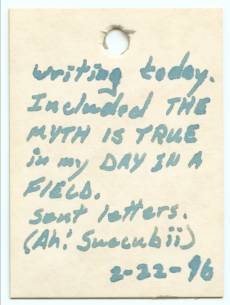 writing today.
Included THE
MYTH IS TRUE
in my DAY IN A
FIELD.
sent letters.
(Ah! Succubii)
2-22-96